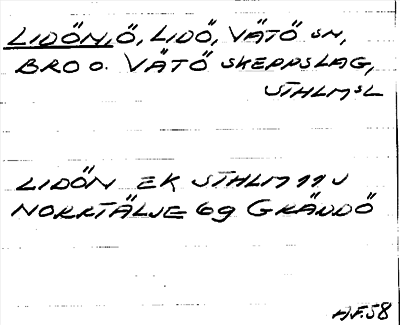 LIDÖN, Ö, LIDÖ, VÄTÖ SN,
BRO O. VÄTÖ SKEPPSLAG,
STHLMSL
LIDÖN EK STHLM 11 J
NORRTÄLJE 69 GRÄNDÖ
H.F.58